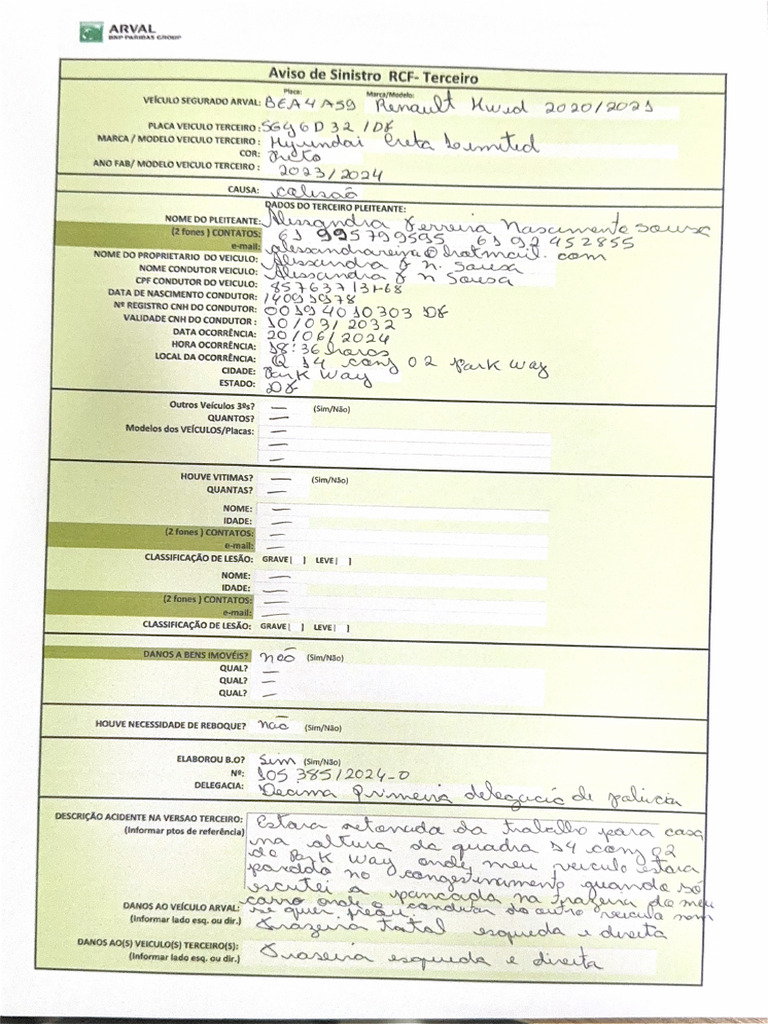 ARVAL
BNP PARIBAS GROUP
Aviso de Sinistro RCF- Terceiro
Placa: Marca/Modelo:
VEÍCULO SEGURADO ARVAL: BEA4A59 Renault Kwid 2020/2021
PLACA VEICULO TERCEIRO: SGY6D32 / DF
MARCA / MODELO VEICULO TERCEIRO : Hyundai Creta Limited
COR: Preto
ANO FAB/ MODELO VEICULO TERCEIRO : 2023/2024
CAUSA: colisão
DADOS DO TERCEIRO PLEITEANTE:
NOME DO PLEITEANTE: Alessandra Ferreira Nascimento Sousa
(2 fones ) CONTATOS: 61 995799595 61 92452855
e-mail: alessandrareija@hotmail.com
NOME DO PROPRIETARIO DO VEICULO: Alessandra F N. Sousa
NOME CONDUTOR VEICULO: Alessandra F N Sousa
CPF CONDUTOR DO VEICULO: 857637131-68
DATA DE NASCIMENTO CONDUTOR: 14091978
Nº REGISTRO CNH DO CONDUTOR: 00194010303 DF
VALIDADE CNH DO CONDUTOR : 10/03/2032
DATA OCORRÊNCIA: 20/06/2024
HORA OCORRÊNCIA: 18:36 horas
LOCAL DA OCORRÊNCIA: Q 14 conj 02 park way
CIDADE: Park Way
ESTADO: DF
Outros Veículos 3ºs? — (Sim/Não)
QUANTOS? —
Modelos dos VEÍCULOS/Placas: —
—
—
HOUVE VITIMAS? — (Sim/Não)
QUANTAS? —
NOME: —
IDADE: —
(2 fones ) CONTATOS: —
e-mail: —
CLASSIFICAÇÃO DE LESÃO: GRAVE[ ] LEVE[ ]
NOME: —
IDADE: —
(2 fones ) CONTATOS: —
e-mail: —
CLASSIFICAÇÃO DE LESÃO: GRAVE[ ] LEVE[ ]
DANOS A BENS IMOVÉIS? não (Sim/Não)
QUAL? —
QUAL? —
QUAL? —
HOUVE NECESSIDADE DE REBOQUE? não (Sim/Não)
ELABOROU B.O? Sim (Sim/Não)
Nº: 105385/2024-0
DELEGACIA: Decima Primeira delegacia de policia
DESCRIÇÃO ACIDENTE NA VERSAO TERCEIRO: Estava retornada da trabalho para casa
(Informar ptos de referência) na altura da quadra 14 conj 02
de Park Way onde meu veiculo estava
parado no congestinamento quando só
escutei a pancada na trazeira do meu
carro onde o condutor do outro veiculo nem
se quer freou.
DANOS AO VEÍCULO ARVAL: Trazeira total esquerda e direita
(Informar lado esq. ou dir.)
DANOS AO(S) VEICULO(S) TERCEIRO(S): Traseira esquerda e direita
(Informar lado esq. ou dir.)